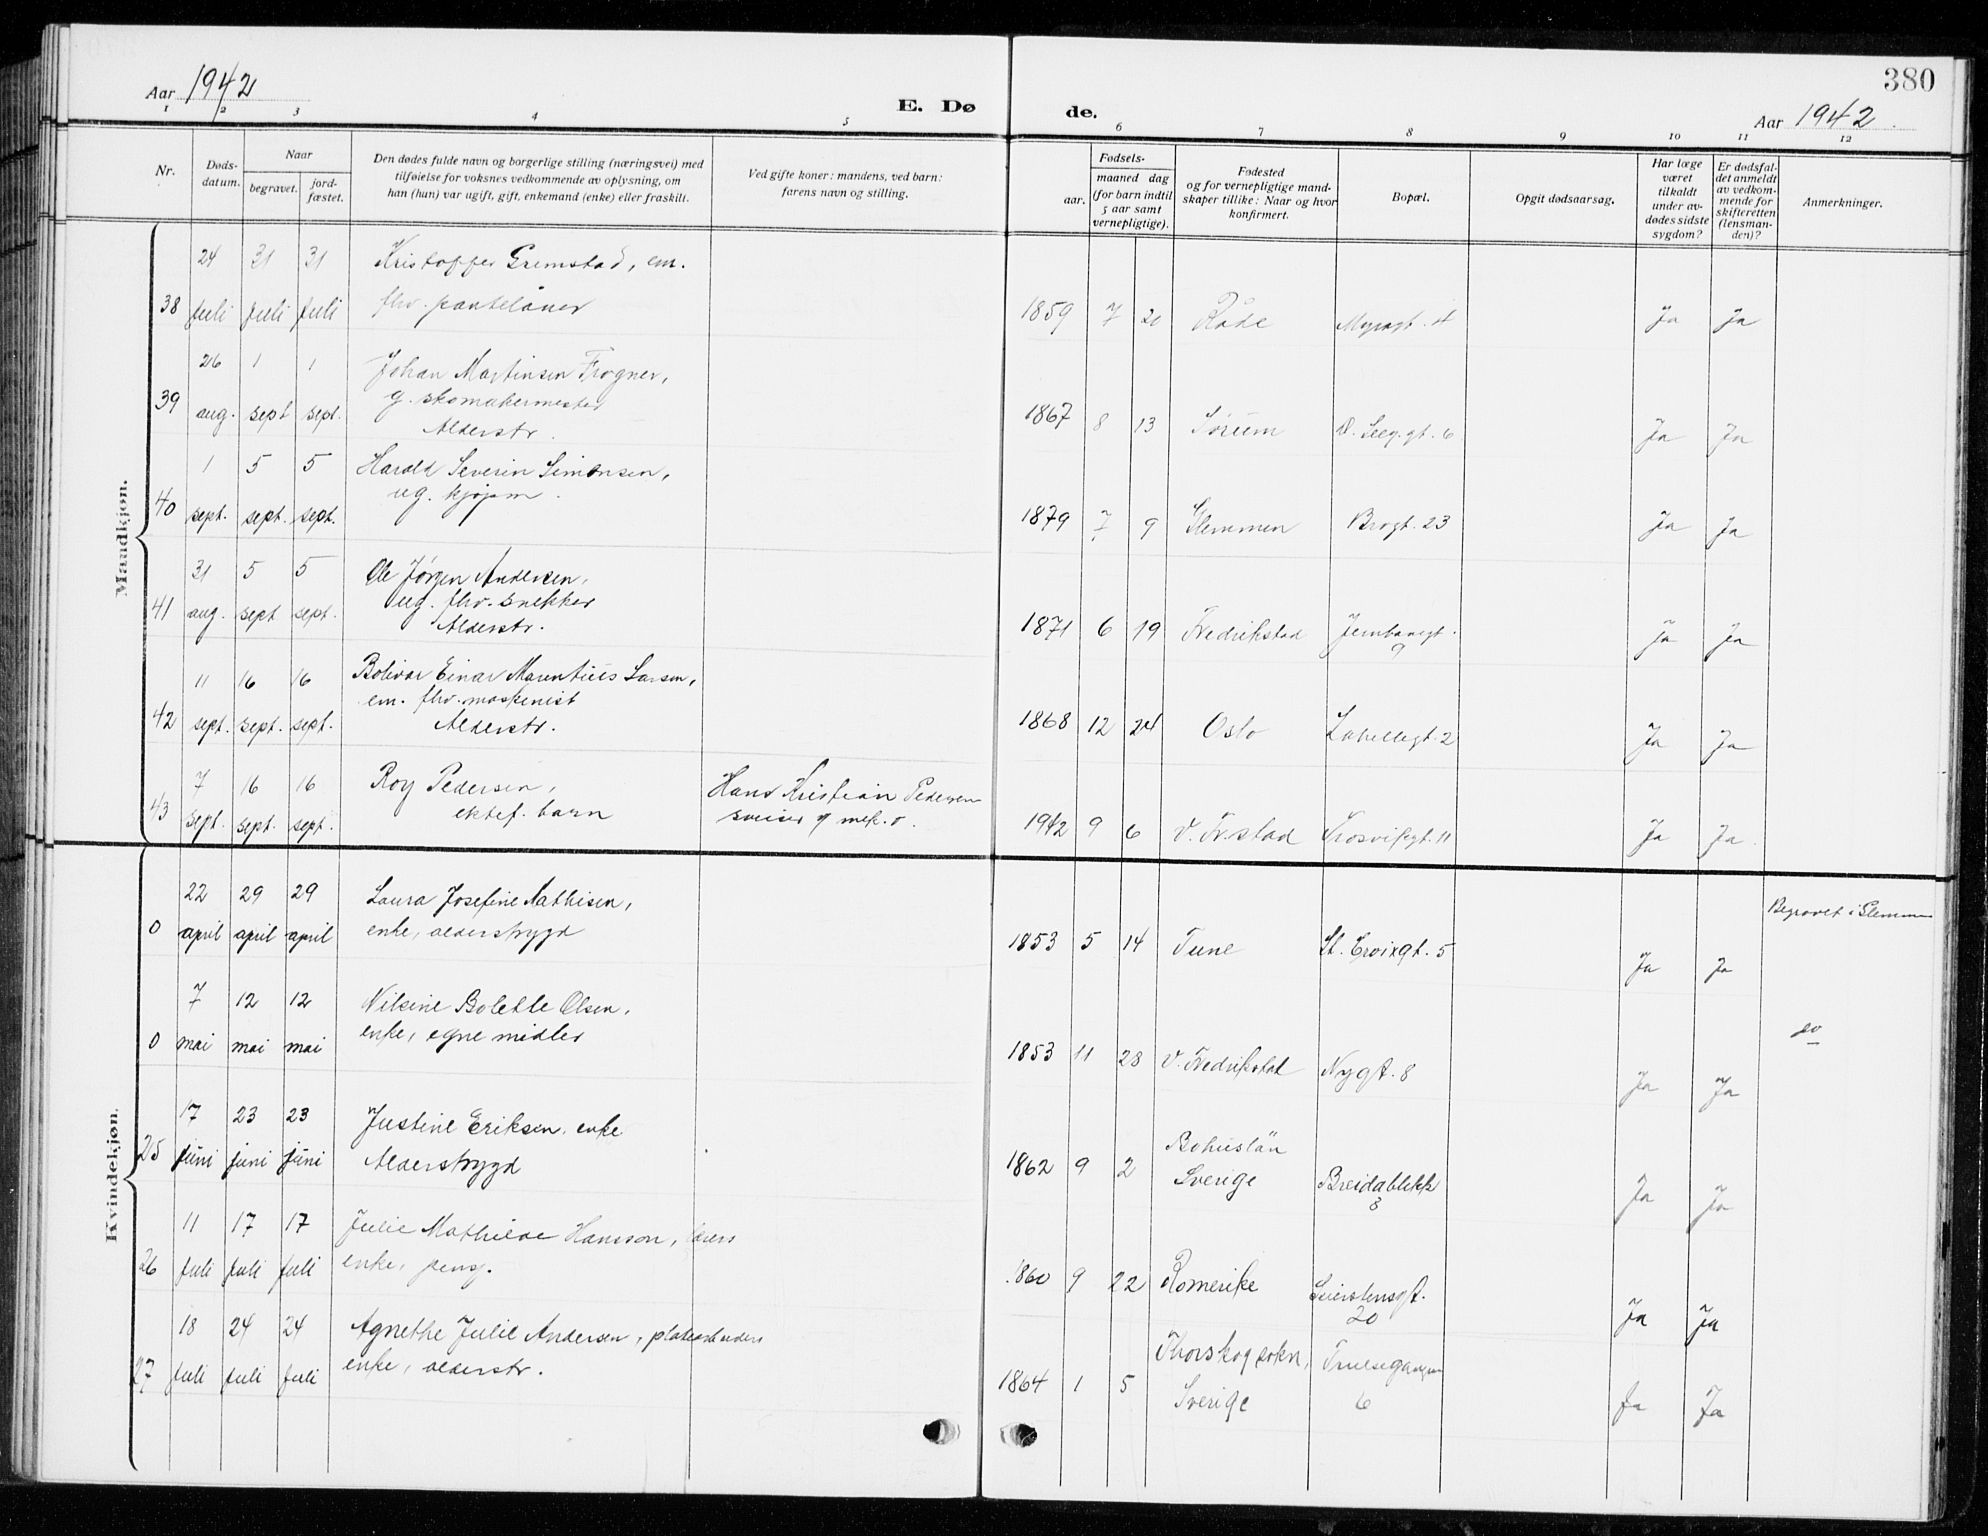 380
Aar 1942
E. Dø
de.
Aar 1942
1 2 3 4 5 6 7 8 9 10 11 12
Nr.
Døds-
datum.
Naar
begravet.
jord-
fæstet.
Den dødes fulde navn og borgerlige stilling (næringsvei) med
tilføielse for voksnes vedkommende av oplysning, om
han (hun) var ugift, gift, enkemand (enke) eller fraskilt.
Ved gifte koner: mandens, ved barn:
farens navn og stilling.
Fødsels-
aar.
maaned dag
(for barn indtil
5 aar samt
vernepligtige).
Fødested
og for vernepligtige mand-
skaper tillike: Naar og hvor
konfirmert.
Bopæl.
Opgit dødsaarsag.
Har læge
været
tilkaldt
under av-
dødes sidste
sygdom?
Er dødsfal-
det anmeldt
av vedkom-
mende for
skifteretten
(lensman-
den)?
Anmerkninger.
Maadkjøn.
24 31 31 Kristoffer Gremstad, em.
38 juli juli juli fhv. pantelåner 1859 7 20 Råde Myragt. 4 Ja Ja
26 1 1 Johan Martinsen Frogner,
g. skomakermester
39 aug. sept sept. 1867 8 13 Sørum gt. 6 Ja Ja
Alderstr.
1 5 5 Harald Severin Simensen,
ug. kjøpm.
40 sept. sept. sept. 1879 7 9 Glemmen Brogt. 23 Ja Ja
31 5 5 Ole Jørgen Andersen,
41 aug. sept sept. ug. fhv. snekker
Alderstr. 1871 6 19 Fredrikstad Jernbanegt.
9 Ja Ja
11 16 16 Bolivar Einar Marentius Larsen,
em. fhv. maskenist
42 sept. sept. sept. Alderstr. 1868 12 24 Oslo Labellegt. 2 Ja Ja
7 16 16 Roy Pedersen, Hans Kristian Pedersen
43 sept. sept. sept. ektef. barn sveiser v mek. v. 1942 9 6 V. Fr.stad Trosvikgt. 11 Ja Ja
Kvindekjøn.
22 29 29 Laura Josefine Mathisen, Begravet i Glemmen
0 april april april enke, alderstrygd 1853 5 14 Tune St. Croixgt. 5 Ja Ja
7 12 12 Nilsine Bolette Olsen,
0 mai mai mai enke, egne midler 1853 11 28 V. Fredrikstad Nygt. 8 Ja Ja do
17 23 23 Justine Eriksen, enke
25 juni juni juni Alderstrygd 1862 9 2 Bohuslän
Sverige Breidablikk
8 Ja Ja
11 17 17 Julie Mathilde Hansson,
26 juli juli juli enke, pensj. 1860 9 22 Romerike Seierstensgt.
20 Ja Ja
18 24 24 Agnethe Julie Andersen, platearbeiders
27 juli juli juli enke, alderstr. 1864 1 5 Thorskog sokn,
Sverige Trulsegangen
6 Ja Ja